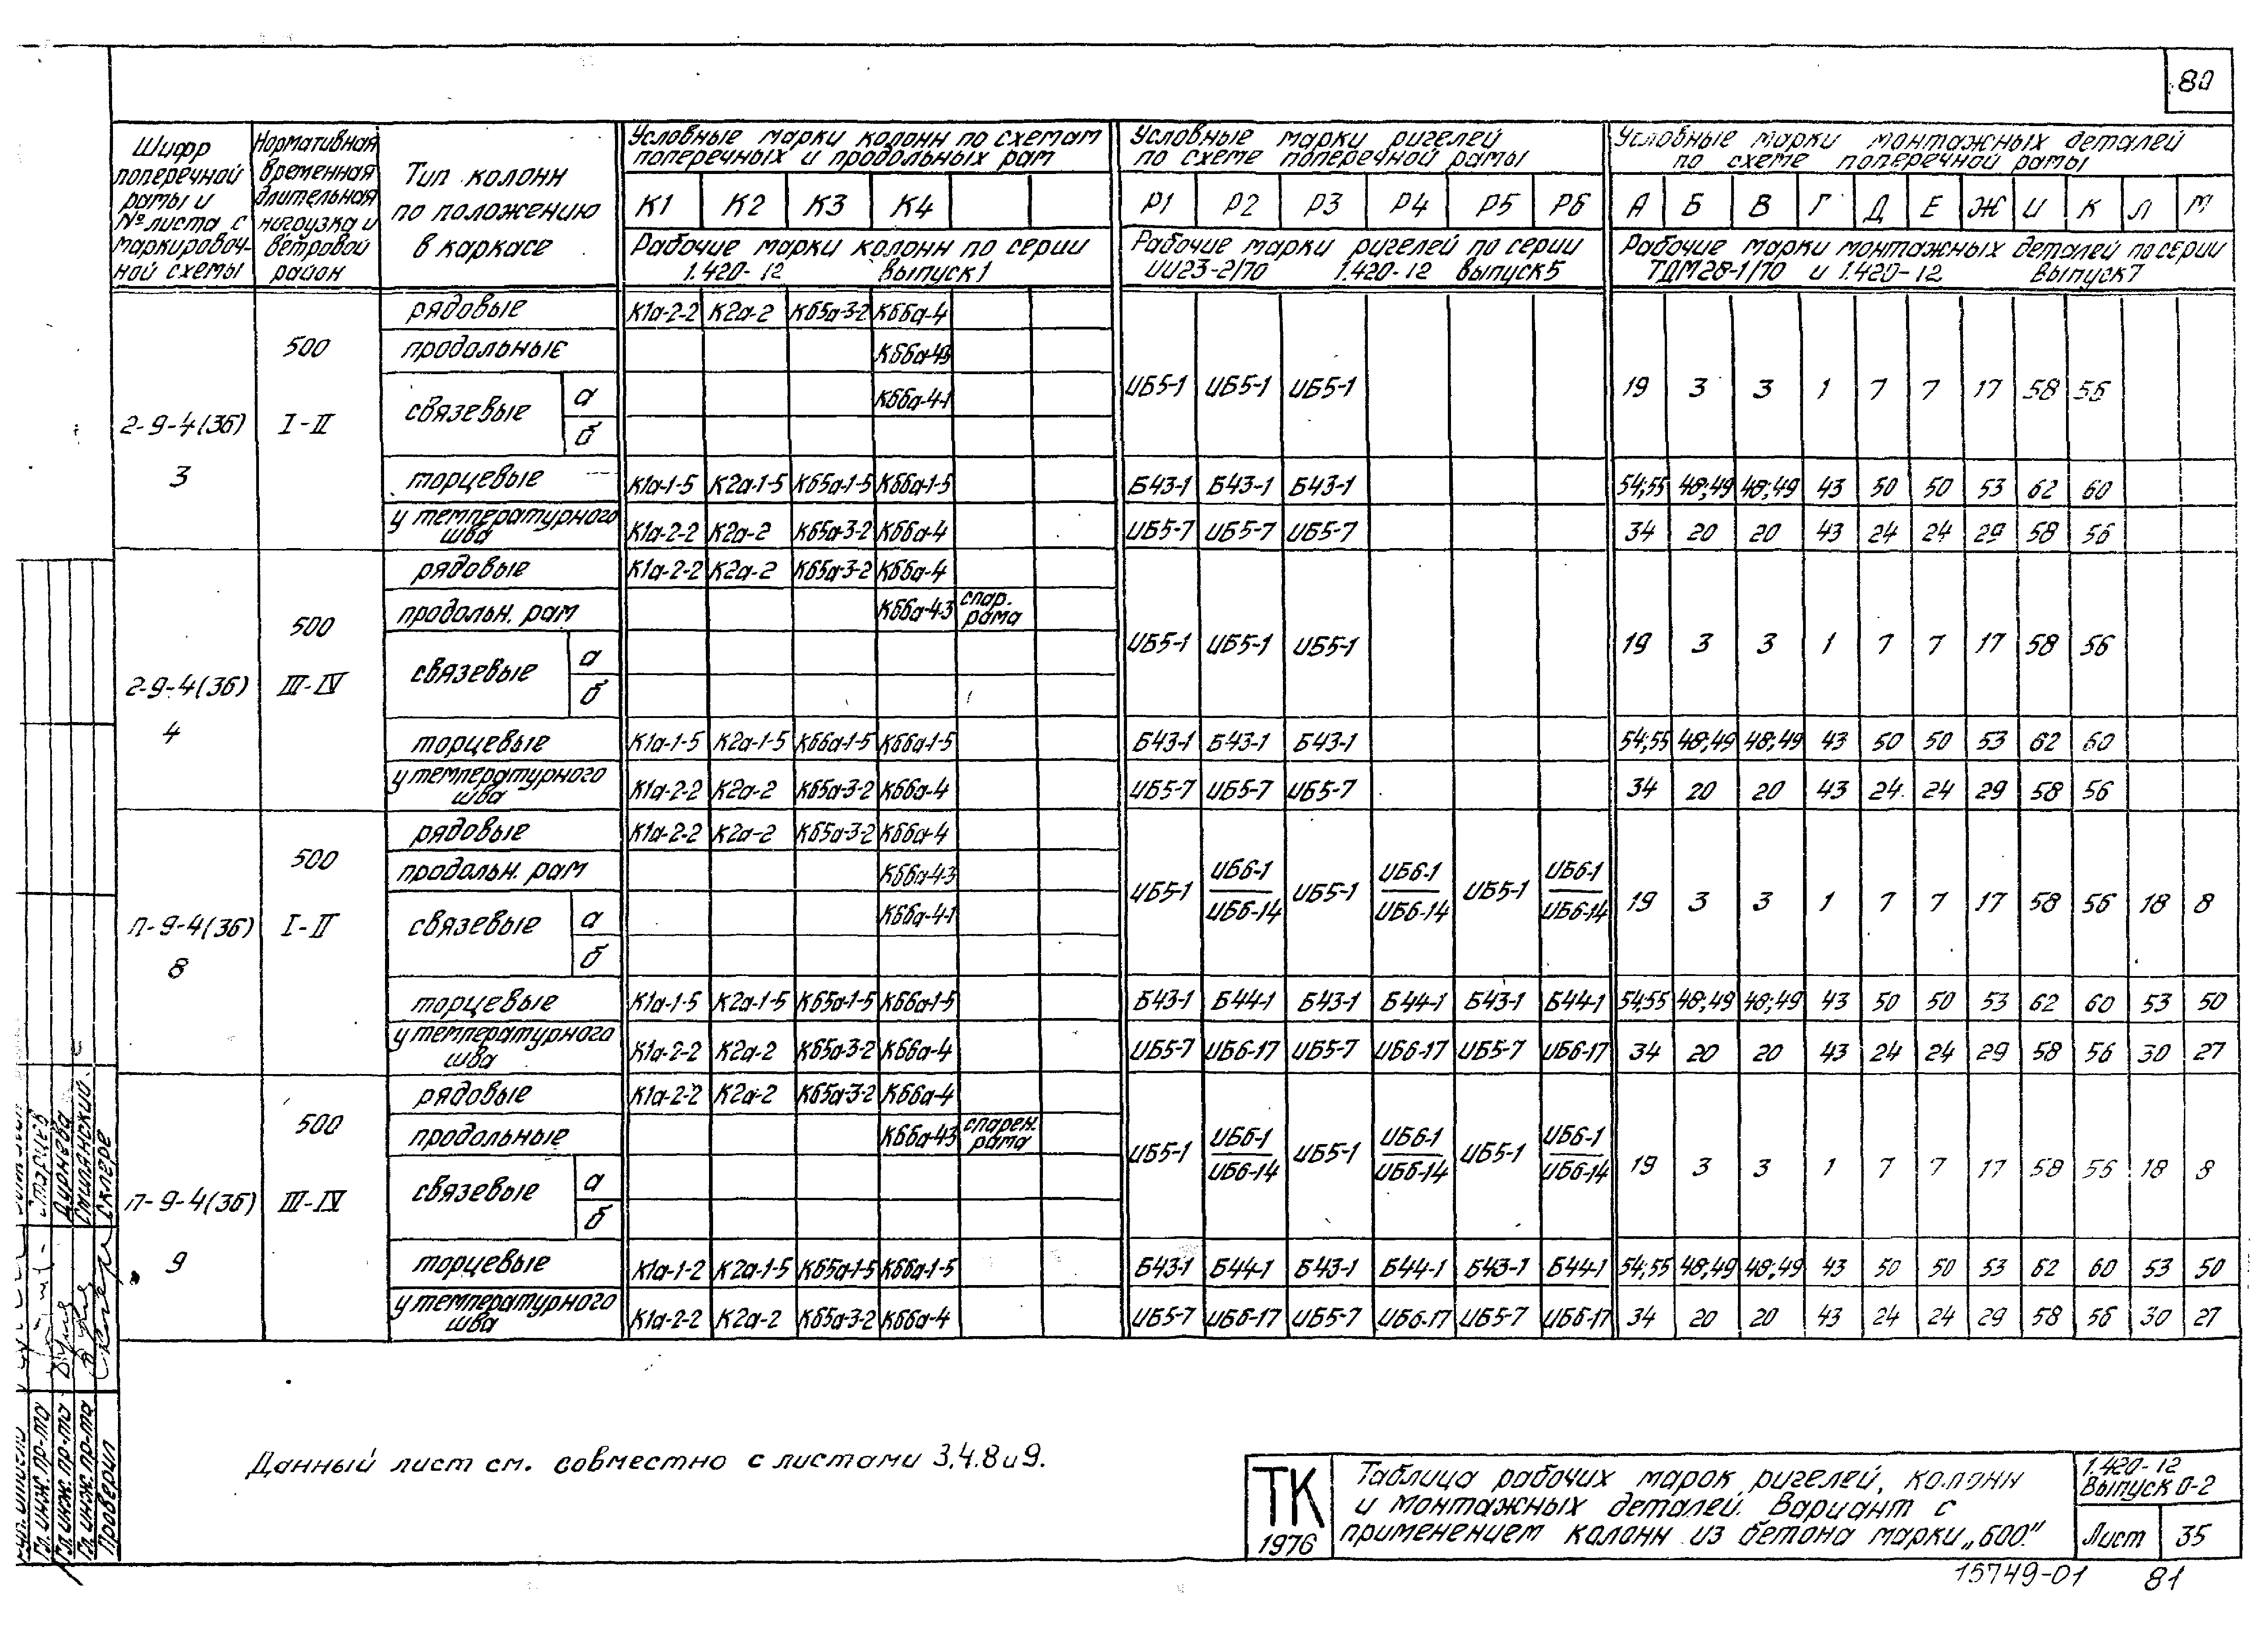 80
Шифр поперечной рамы и № листа с маркировочной схемы
Нормативная временная длительная нагрузка и ветровой район
Тип колонн по положению в каркасе
Условные марки колонн по схемам поперечных и продольных рам
Условные марки ригелей по схеме поперечной рамы
Условные марки монтажных деталей по схеме поперечной рамы
К1 К2 К3 К4 Р1 Р2 Р3 Р4 Р5 Р6 А Б В Г Д Е Ж И К Л М
Рабочие марки колонн по серии 1.420-12 выпуск 1
Рабочие марки ригелей по серии ИИ23-2/70 1.420-12 выпуск 5
Рабочие марки монтажных деталей по серии ТДМ28-1/70 и 1.420-12 выпуск 7
2-9-4(36) 3
500 I-II
рядовые К1а-2-2 К2а-2 К65а-3-2 К66а-4
продольные К66а-4-3
связевые а К66а-4-1
б
ИБ5-1 ИБ5-1 ИБ5-1 19 3 3 1 7 7 17 58 56
торцевые К1а-1-5 К2а-1-5 К65а-1-5 К66а-1-5 Б43-1 Б43-1 Б43-1 54;55 48;49 48;49 43 50 50 53 62 60
у температурного шва К1а-2-2 К2а-2 К65а-3-2 К66а-4 ИБ5-7 ИБ5-7 ИБ5-7 34 20 20 43 24 24 29 58 56
2-9-4(36) 4
500 III-IV
рядовые К1а-2-2 К2а-2 К65а-3-2 К66а-4
продольн. рам К66а-4-3 спар. рама
связевые а
б
ИБ5-1 ИБ5-1 ИБ5-1 19 3 3 1 7 7 17 58 56
торцевые К1а-1-5 К2а-1-5 К66а-1-5 К66а-1-5 Б43-1 Б43-1 Б43-1 54;55 48;49 48;49 43 50 50 53 62 60
у температурного шва К1а-2-2 К2а-2 К65а-3-2 К66а-4 ИБ5-7 ИБ5-7 ИБ5-7 34 20 20 43 24 24 29 58 56
П-9-4(36) 8
500 I-II
рядовые К1а-2-2 К2а-2 К65а-3-2 К66а-4
продольн. рам К66а-4-3
связевые а К66а-4-1
б
ИБ5-1 ИБ6-1 ИБ6-14 ИБ5-1 ИБ6-1 ИБ6-14 ИБ5-1 ИБ6-1 ИБ6-14 19 3 3 1 7 7 17 58 56 18 8
торцевые К1а-1-5 К2а-1-5 К65а-1-5 К66а-1-5 Б43-1 Б44-1 Б43-1 Б44-1 Б43-1 Б44-1 54;55 48;49 48;49 43 50 50 53 62 60 53 50
у температурного шва К1а-2-2 К2а-2 К65а-3-2 К66а-4 ИБ5-7 ИБ6-17 ИБ5-7 ИБ6-17 ИБ5-7 ИБ6-17 34 20 20 43 24 24 29 58 56 30 27
П-9-4(36) 9
500 III-IV
рядовые К1а-2-2 К2а-2 К65а-3-2 К66а-4
продольные К66а-4-3 спарен. рама
связевые а
б
ИБ5-1 ИБ6-1 ИБ6-14 ИБ5-1 ИБ6-1 ИБ6-14 ИБ5-1 ИБ6-1 ИБ6-14 19 3 3 1 7 7 17 58 56 18 8
торцевые К1а-1-2 К2а-1-5 К65а-1-5 К66а-1-5 Б43-1 Б44-1 Б43-1 Б44-1 Б43-1 Б44-1 54;55 48;49 48;49 43 50 50 53 62 60 53 50
у температурного шва К1а-2-2 К2а-2 К65а-3-2 К66а-4 ИБ5-7 ИБ6-17 ИБ5-7 ИБ6-17 ИБ5-7 ИБ6-17 34 20 20 43 24 24 29 58 56 30 27
Данный лист см. совместно с листами 3,4.8 и 9.
ТК
1976
Таблица рабочих марок ригелей, колонн
и монтажных деталей. Вариант с
применением колонн из бетона марки „600“
1.420-12
Выпуск 0-2
Лист 35
15749-01 81
Гл. инж. пр-та
Гл. инж. пр-та Дурнева
Гл. инж. пр-та Смилянский
Проверил Скляре